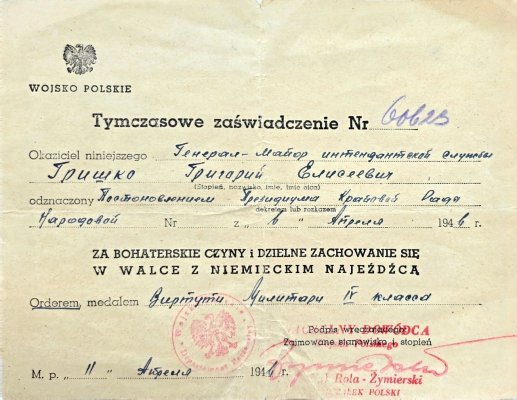 WOJSKO POLSKIE
Tymczasowe zaświadczenie Nr 60623
Okaziciel niniejszego Генерал-Майор интендантской службы
Гришко Григорий Елисеевич
(Stopień, nazwisko, imię, imię ojca)
odznaczony Постановлением Президиума Крайовой Рада
dekretem lub rozkazem
Народовой Nr z „6" Апреля 1946 r.
ZA BOHATERSKIE CZYNY i DZIELNE ZACHOWANIE SIĘ
W WALCE Z NIEMIECKIM NAJEŹDŹCĄ
Orderem, medalem Виртути Милитари IV класса
Podpis wydającego
DOWÓDCA
Zajmowane stanowisko i stopień
Polskiego
Rola - Żymierski
POLSKI
M. p. „11" Апреля 1946 r.